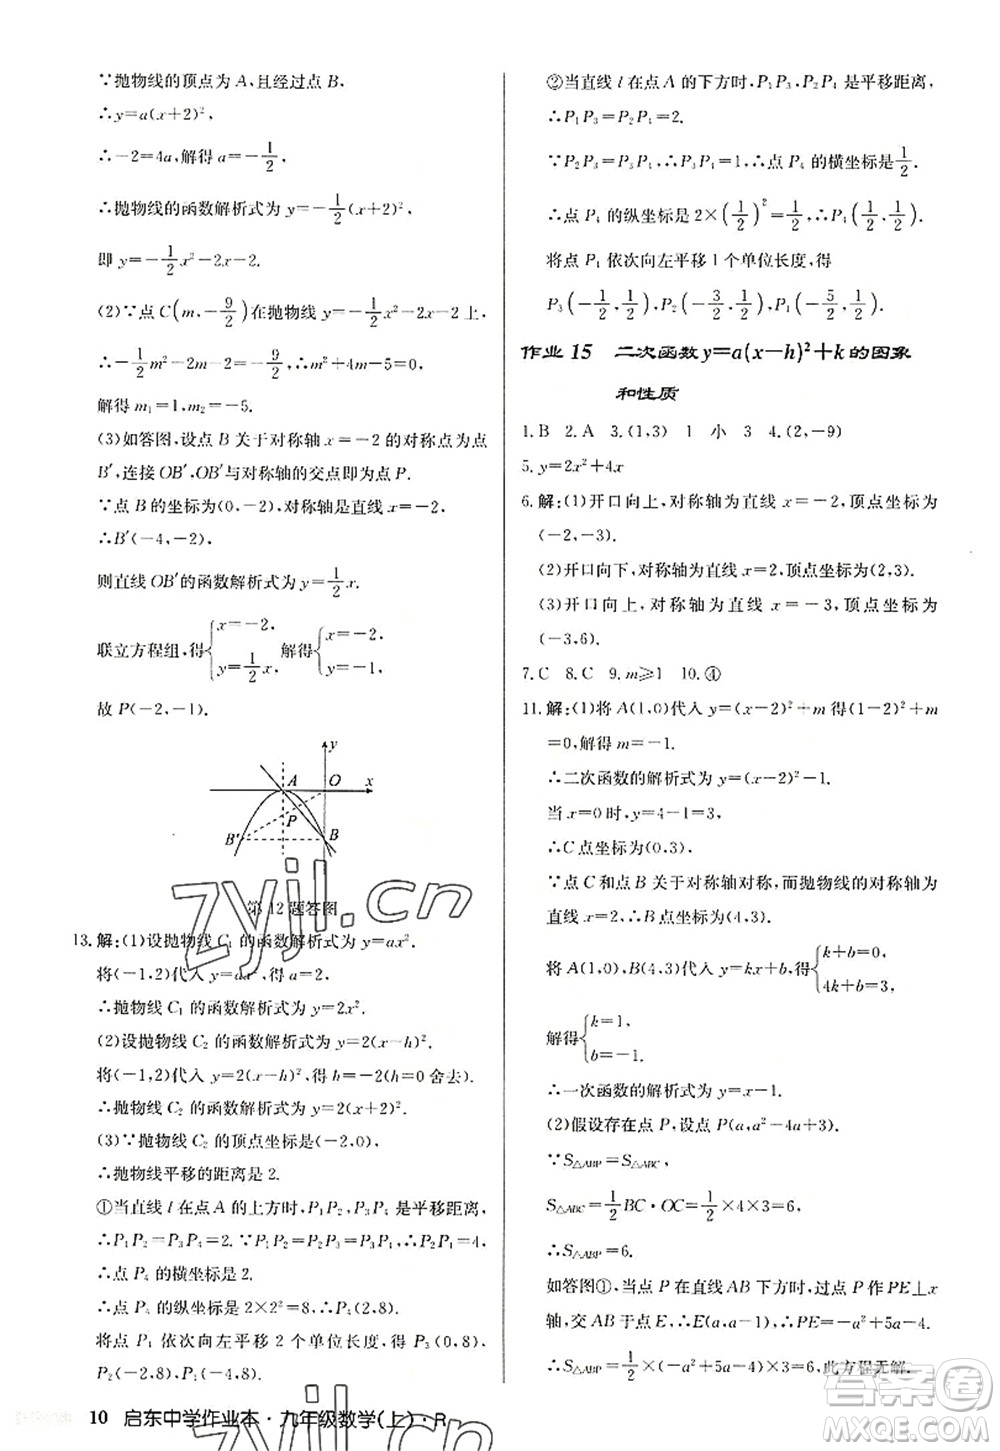 ∵抛物线的顶点为 A,且经过点 B,
∴y=a(x+2)²,
∴-2=4a,解得 a=-1/2,
∴抛物线的函数解析式为 y=-1/2(x+2)²,
即 y=-1/2x²-2x-2.
(2)∵点 C(m,-9/2)在抛物线 y=-1/2x²-2x-2上,
∴-1/2m²-2m-2=-9/2,m²+4m-5=0,
解得 m₁=1,m₂=-5.
(3)如答图,设点 B 关于对称轴 x=-2 的对称点为点
B′,连接 OB′,OB′与对称轴的交点即为点 P.
∵点 B 的坐标为(0,-2),对称轴为直线 x=-2,
∴B′(-4,-2),
则直线 OB′的函数解析式为 y=1/2x.
联立方程组,得{x=-2, y=1/2x, 解得{x=-2, y=-1,
故 P(-2,-1).
y
A O x
P
B′ B
第 12 题答图
13.解:(1)设抛物线 C₁ 的函数解析式为 y=ax².
将(-1,2)代入 y=ax²,得 a=2.
∴抛物线 C₁ 的函数解析式为 y=2x².
(2)设抛物线 C₂ 的函数解析式为 y=2(x-h)².
将(-1,2)代入 y=2(x-h)²,得 h=-2(h=0 舍去).
∴抛物线 C₂ 的函数解析式为 y=2(x+2)².
(3)∵抛物线 C₂ 的顶点坐标是(-2,0),
∴抛物线平移的距离是 2.
①当直线 l 在点 A 的上方时,P₁P₂,P₃P₄是平移距离,
∴P₁P₂=P₃P₄=2.∵P₂P₃=P₃P₄,∴P₂P₃=2.
∴点 P₄ 的横坐标是 2.
∴点 P₄ 的纵坐标是 2×2²=8,∴P₄(2,8).
将点 P₄ 依次向左平移 2 个单位长度,得 P₃(0,8),
P₂(-2,8),P₁(-4,8).
②当直线 l 在点 A 的下方时,P₁P₃,P₂P₄是平移距离,
∴P₁P₃=P₂P₄=2.
∵P₂P₃=P₃P₄,∴P₃P₄=1,∴点 P₄ 的横坐标是1/2.
∴点 P₄ 的纵坐标是 2×(1/2)²=1/2,∴P₄(1/2,1/2).
将点 P₄ 依次向左平移 1 个单位长度,得
P₃(-1/2,1/2),P₂(-3/2,1/2),P₁(-5/2,1/2).
作业 15 二次函数 y=a(x-h)²+k 的图象
和性质
1.B 2.A 3.(1,3) 1 小 3 4.(2,-9)
5.y=2x²+4x
6.解:(1)开口向上,对称轴为直线 x=-2,顶点坐标为
(-2,-3).
(2)开口向下,对称轴为直线 x=2,顶点坐标为(2,3).
(3)开口向上,对称轴为直线 x=-3,顶点坐标为
(-3,6).
7.C 8.C 9.m⩾1 10.④
11.解:(1)将 A(1,0)代入 y=(x-2)²+m 得(1-2)²+m
=0,解得 m=-1.
∴二次函数的解析式为 y=(x-2)²-1.
当 x=0 时,y=4-1=3,
∴C 点坐标为(0,3).
∵点 C 和点 B 关于对称轴对称,而抛物线的对称轴为
直线 x=2,∴B 点坐标为(4,3).
将 A(1,0),B(4,3)代入 y=kx+b 得{k+b=0, 4k+b=3,
解得{k=1, b=-1.
∴一次函数的解析式为 y=x-1.
(2)假设存在点 P,设点 P(a,a²-4a+3).
∵S△ABP=S△ABC,
S△ABC=1/2BC·3=1/2×4×3=6,
∴S△ABP=6.
如答图①,当点 P 在直线 AB 下方时,过点 P 作 PE⊥x
轴,交 AB 于点 E,∴E(a,a-1),∴PE=-a²+5a-4,
∴S△ABP=1/2×(-a²+5a-4)×3=6,此方程无解.
10 启东中学作业本·九年级数学(上)·R
zyjl.cn
答案圈